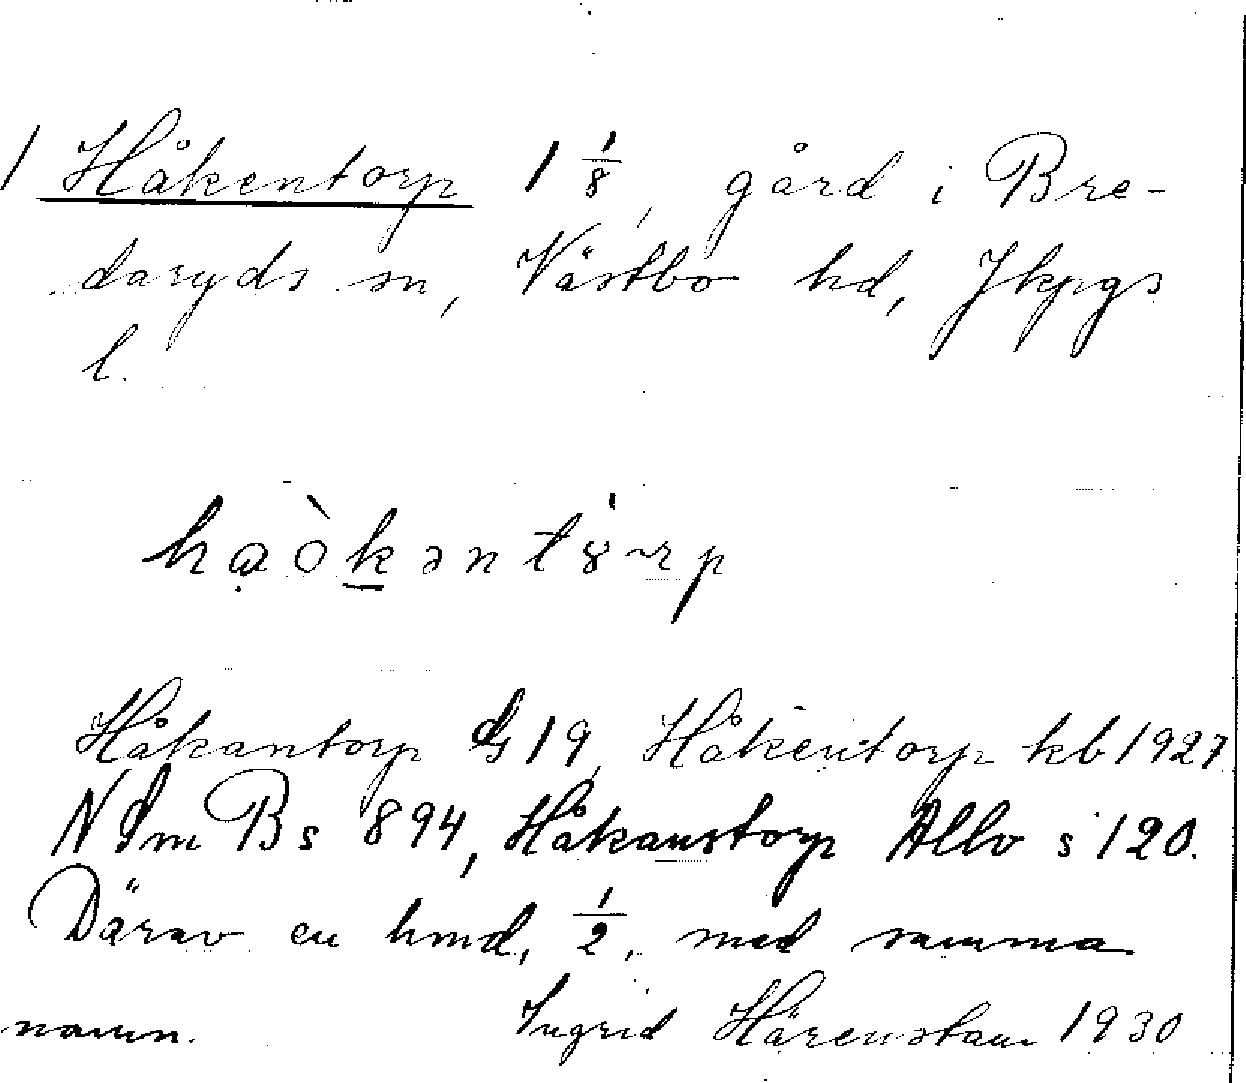 1 Håkentorp 1 1/8, gård i Bre-
daryds sn, Västbo hd, Jkpgs
l.
Håkantorp G 19, Håkentorp kb 1927
Bs 894, Håkanstorp Allvo s 120.
Därav en hmd, 1/2, med samma
namn. Ingrid Härenstam 1930